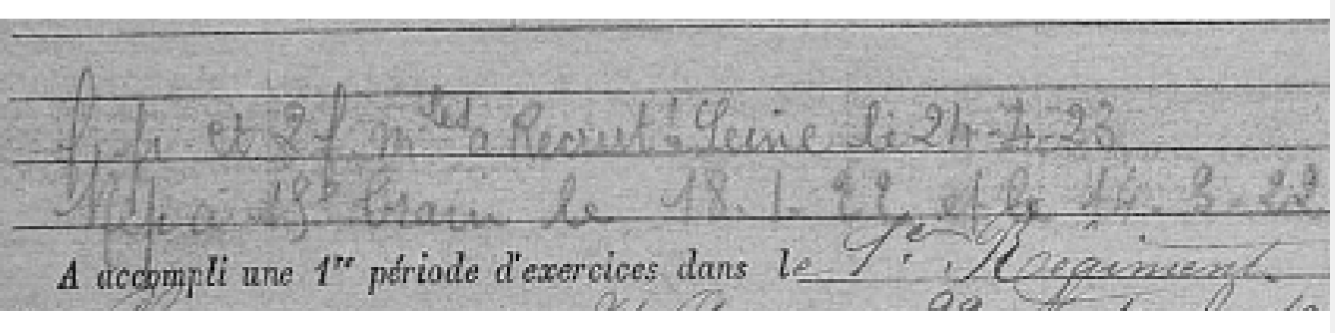 f. p. et 2 f. m^les a Recrut^t Seine le 24-4-23
a 13^e train le 18.1.22 et le 14.3-22
A accompli une 1^re période d'exercices dans le 1^er Régiment